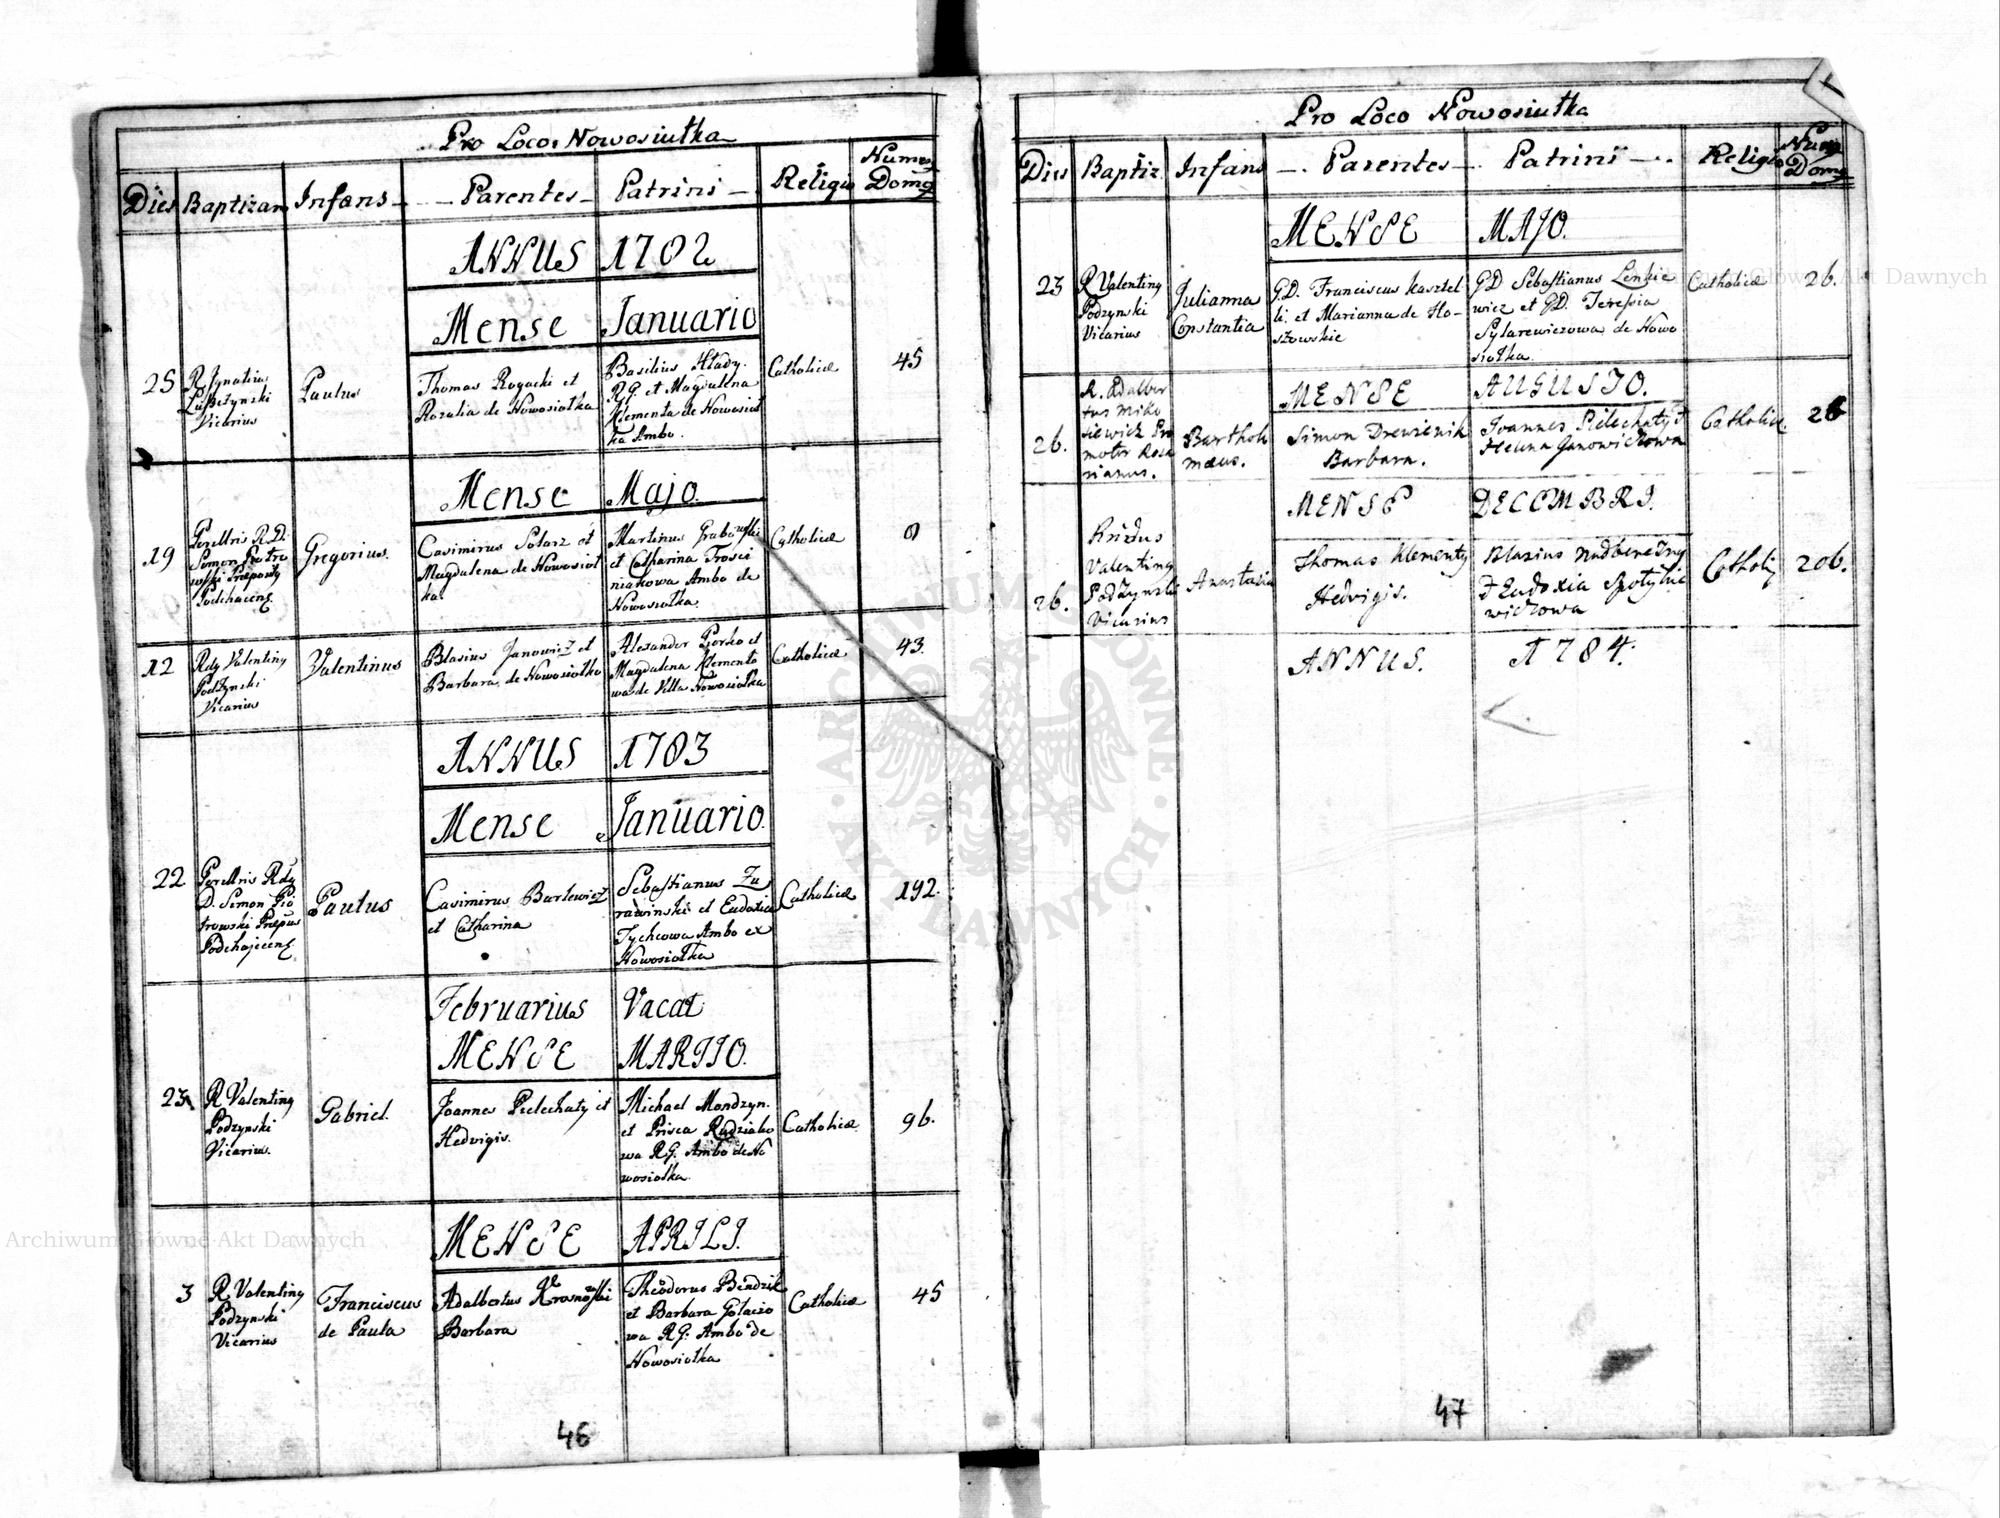 Pro Loco Nowosiutka
Dies Baptizans Infans Parentes Patrini Religio Numerg Domg
ANNUS 1782
Mense Januario
25
R Ignatius
Vicarius
Paulus
Thomas Rogacki et
Rozalia de Nowosiołka
Basilius Hłady
R.G. et Magdalena
Klementa de Nowosioł
ka Ambo.
Catholicæ
45
Mense Majo.
19
Perillris R.D.
Simon Piotro
wski Præpostg
Podhacens
Gregorius.
Casimirus Solarz et
Magdalena de Nowosioł
ka.
Martinus Grabowski
et Catharina Trosci
niakowa Ambo de
Nowosiołka.
Catholicæ
8
12
Rdg Valenting
Podzynski
Vicarius
Valentinus
Blasius Janowicz et
Barbara de Nowosiołka
Alexander Gorko et
Magdalena Klemento
wa de Villa Nowosiołka
Catholicæ
43.
ANNUS 1783
Mense Januario.
22
Perillris Rdg
D. Simon Pio
trowski Præpus
Podhajcens
Paulus
Casimirus Burlewicz
et Catharina
Sebastianus Zu
rawinski et Eudoxia
Tychcowa Ambo ex
Nowosiołka
Catholicæ
192.
Februarius Vacat
MENSE MARTIO.
23
R Valenting
Podzynski
Vicarius.
Gabriel.
Joannes Pielechaty et
Hedvigis.
Michael Mondzyn.
et Prisca Rudziako
wa R.G. Ambo de No
wosiołka.
Catholicæ
96.
MENSE APRILI.
3
R Valenting
Podzynski
Vicarius
Franciscus
de Paula
Adalbertus Krasnowski
Barbara
Theodorus Bendzik
et Barbara Golacio
wa R.G. Ambo de
Nowosiołka
Catholicæ
45
46
Pro Loco Nowosiutka
Dies Baptiz. Infans Parentes Patrini Religio Numg Domg
MENSE MAJO.
23
R Valenting
Podzynski
Vicarius
Julianna
Constantia
G.D. Franciscus Kasztel
li. et Marianna de Ho-
szowskie
GD Sebastianus Lenkie
wicz et G.D. Teressia
Sylarewiczowa de Nowo
siołka.
Catholicæ
26.
MENSE AUGUSTO.
26.
R. Adalber
tus Miko
siewicz Pro
motor Rosa
rianus.
Bartholo
mæus.
Simon Drewienik
Barbara.
Joannes Pielechaty et
Helena Janowiczowa
Catholicæ
26
MENSE DECEMBRI.
26.
Rndus
Valenting
Podzynski
Vicarius
Anastasia
Thomas Klementy
Hedvigis.
Blasius
et Eudoxia
wiczowa
Catholi
206.
ANNUS. 1784.
47
ARCHIWUM GŁÓWNE · AKT DAWNYCH ·
Archiwum Główne Akt Dawnych
Archiwum Główne Akt Dawnych